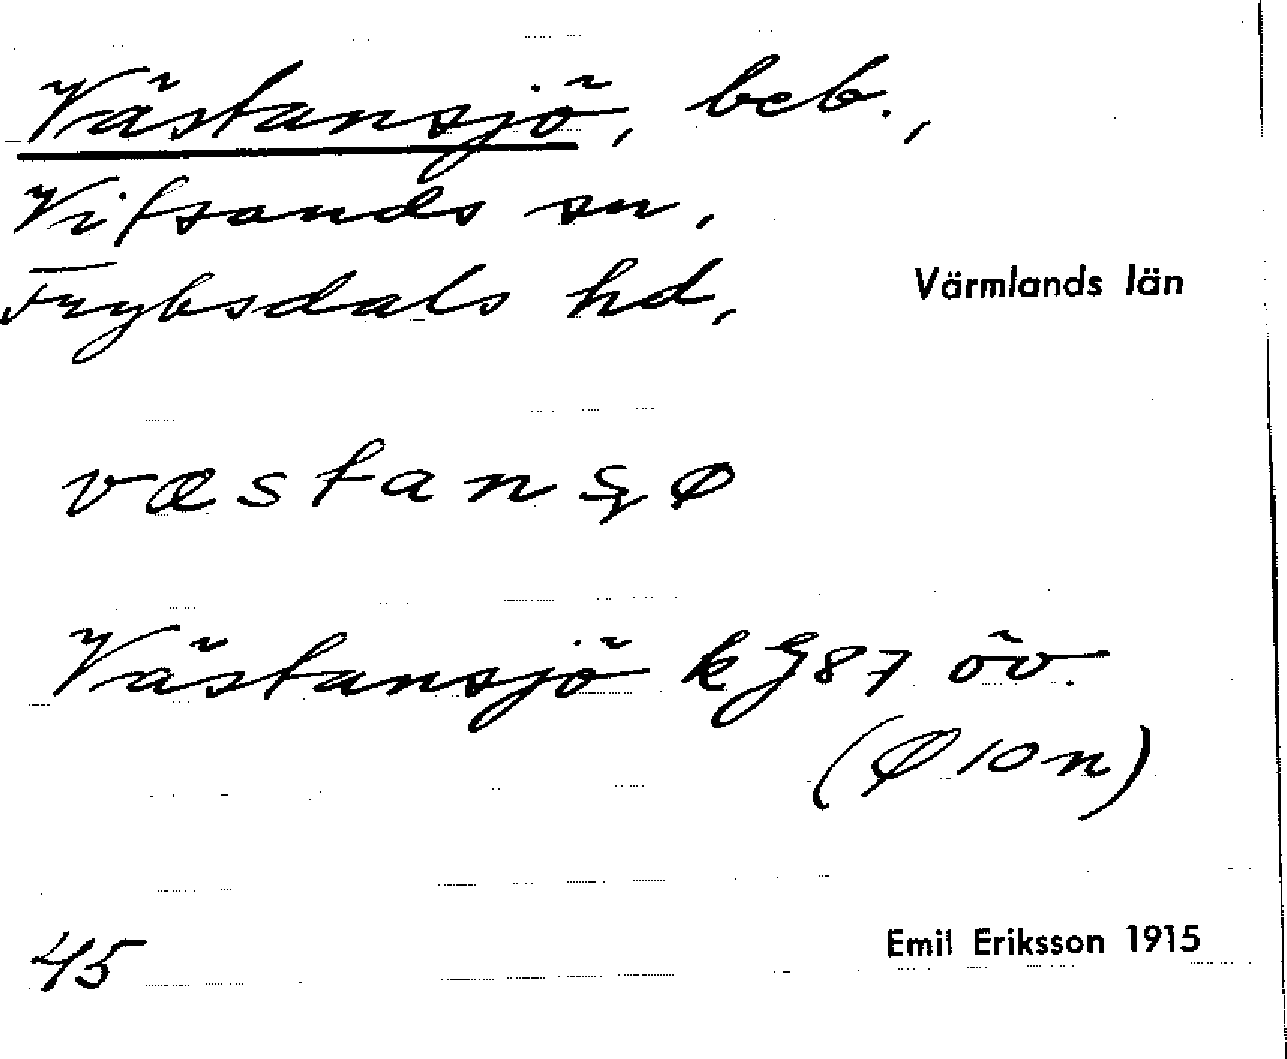 Västansjö, beb.,
Vitsands sn,
Fryksdals hd,
Värmlands län
væstanʂø
Västansjö k J87 öv.
(Ø 10 n)
45
Emil Eriksson 1915